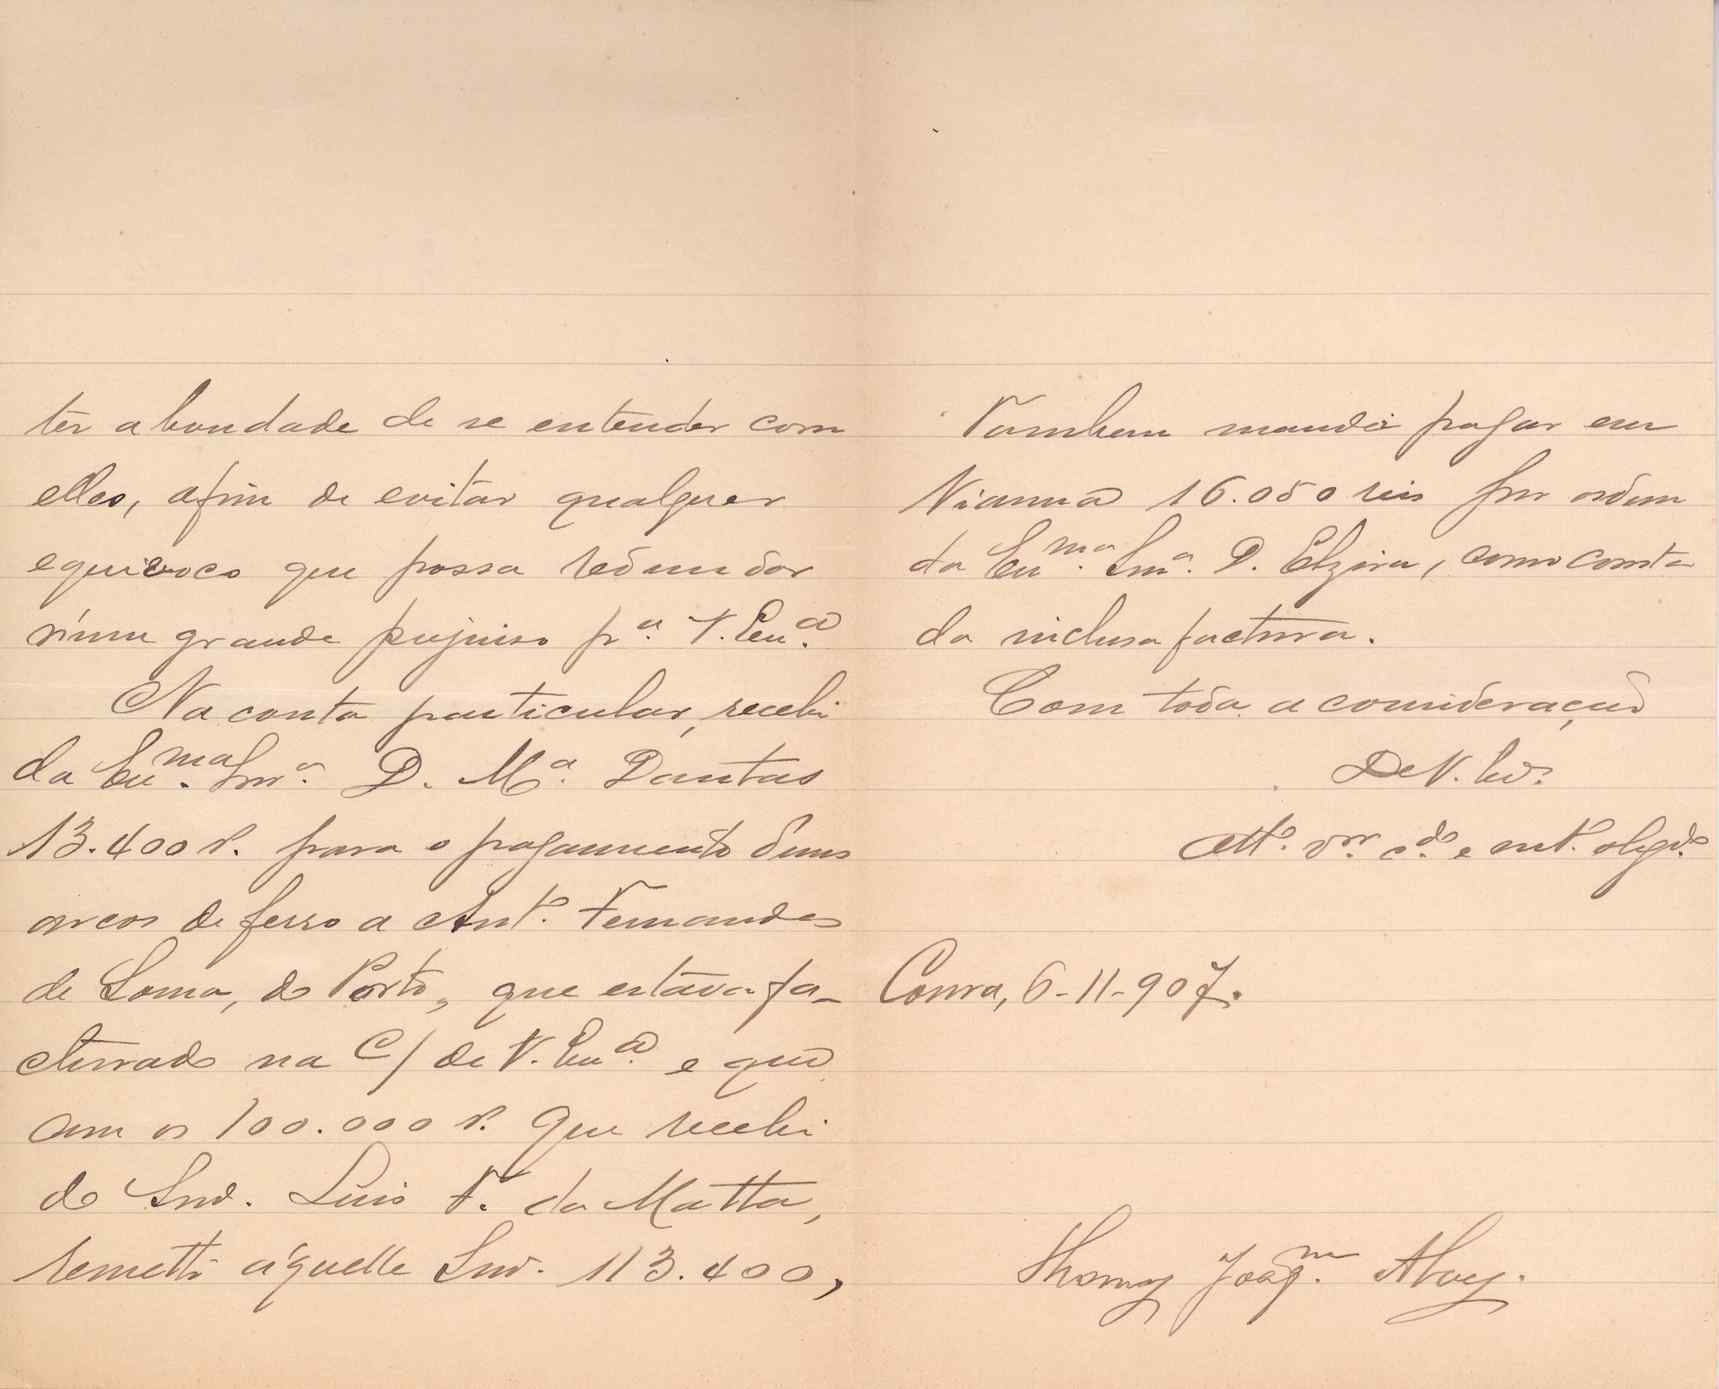 ter a bondade de se entender com
elles, afim de evitar qualquer
equivoco que possa redundar
n'um grande prejuiso p.ª V. Ex.ª
Na conta particular, recebi
da Ex.ma Snr.ª D. M.ª Dantas
13.400 r. para o pagamento d'uns
arcos de ferro a Ant.º Fernandes
de Sousa, do Porto, que estava fa-
cturado na C/ de V. Ex.ª e que
com os 100.000 r. que recebi
do Snr. Luis F. da Matta,
remetti áquelle Snr. 113.400,
Tambem mandei pagar em
Vianna 16.050 reis por ordem
da Ex.ma Snr.ª D. Elzira, como consta
da inclusa factura.
Com toda a consideração
De V. Ex.ª
Att.º v.or c.do e mt.º obgd.º
Coura, 6-11-907.
Thomaz Joaq.m